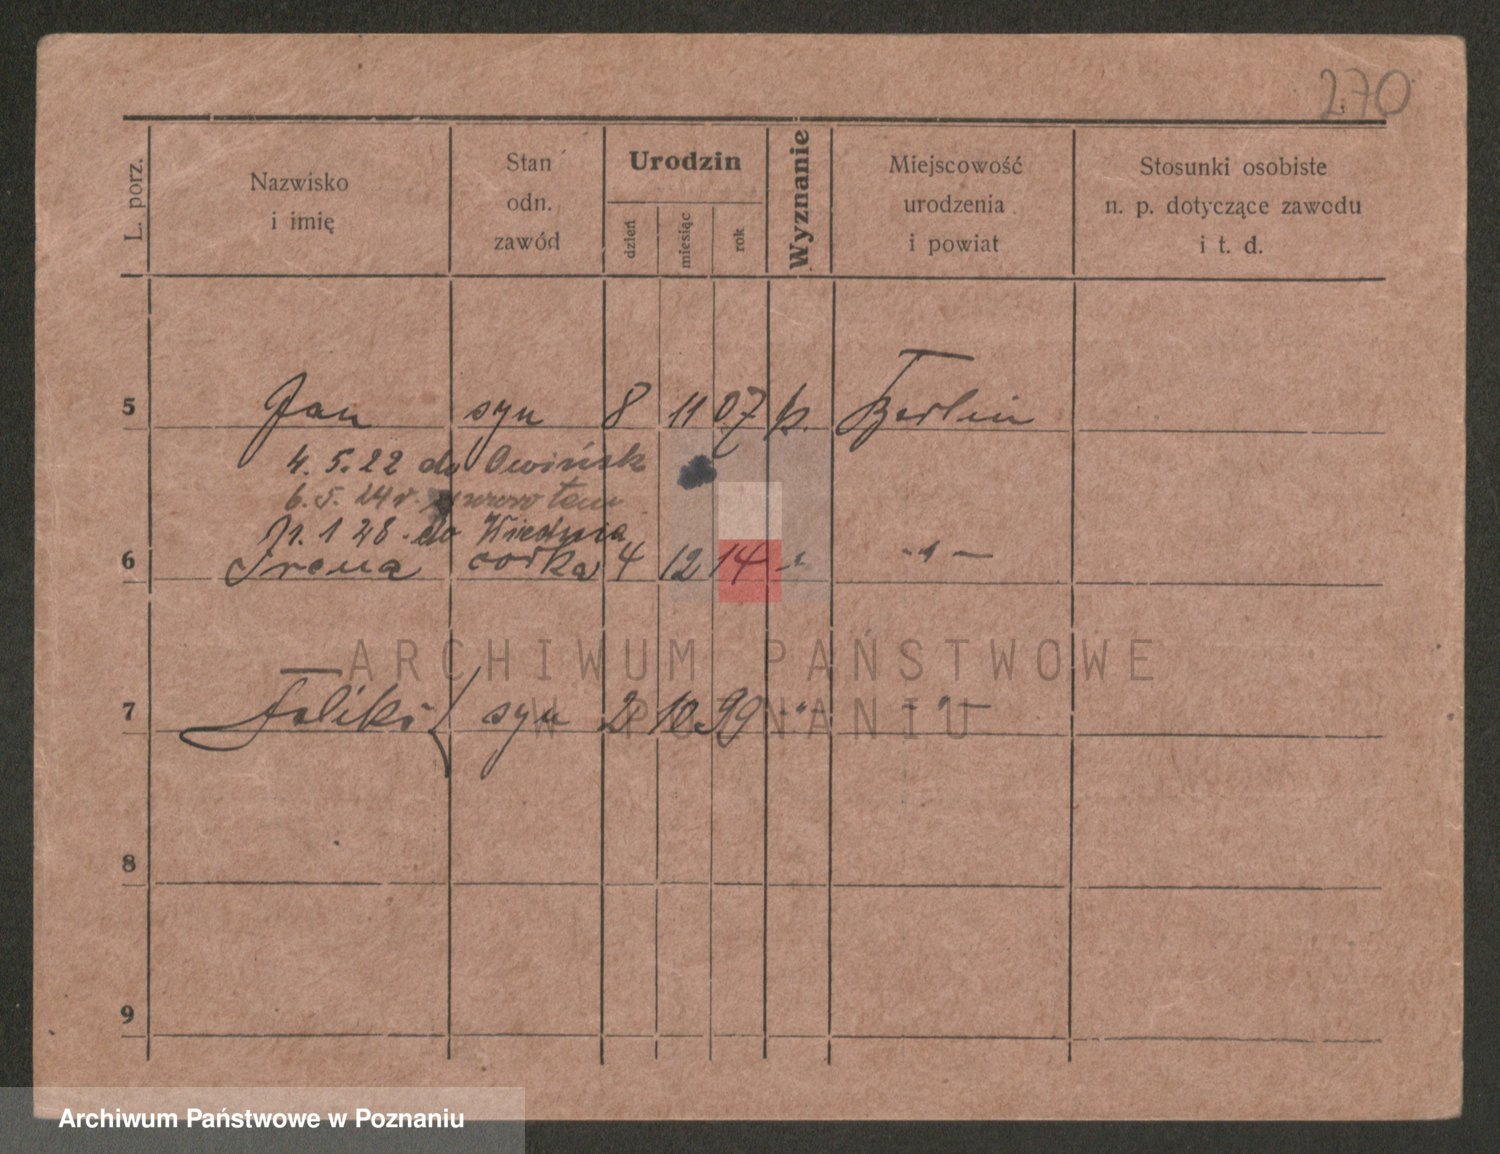 270
L. porz.
Nazwisko
i imię
Stan
odn.
zawód
Urodzin
dzień
miesiąc
rok
Wyznanie
Miejscowość
urodzenia
i powiat
Stosunki osobiste
n. p. dotyczące zawodu
i t. d.
5 Jan syn 8 11 07 k. Berlin
4. 5. 22 do Owińsk
6. 5. 24 r.
1 28. do Wiednia
6 Irena córka 4 12 14 -"- -"-
ARCHIWUM PAŃSTWOWE
W POZNANIU
7 Feliks syn 2 10 99 -"- -"-
8
9
Archiwum Państwowe w Poznaniu